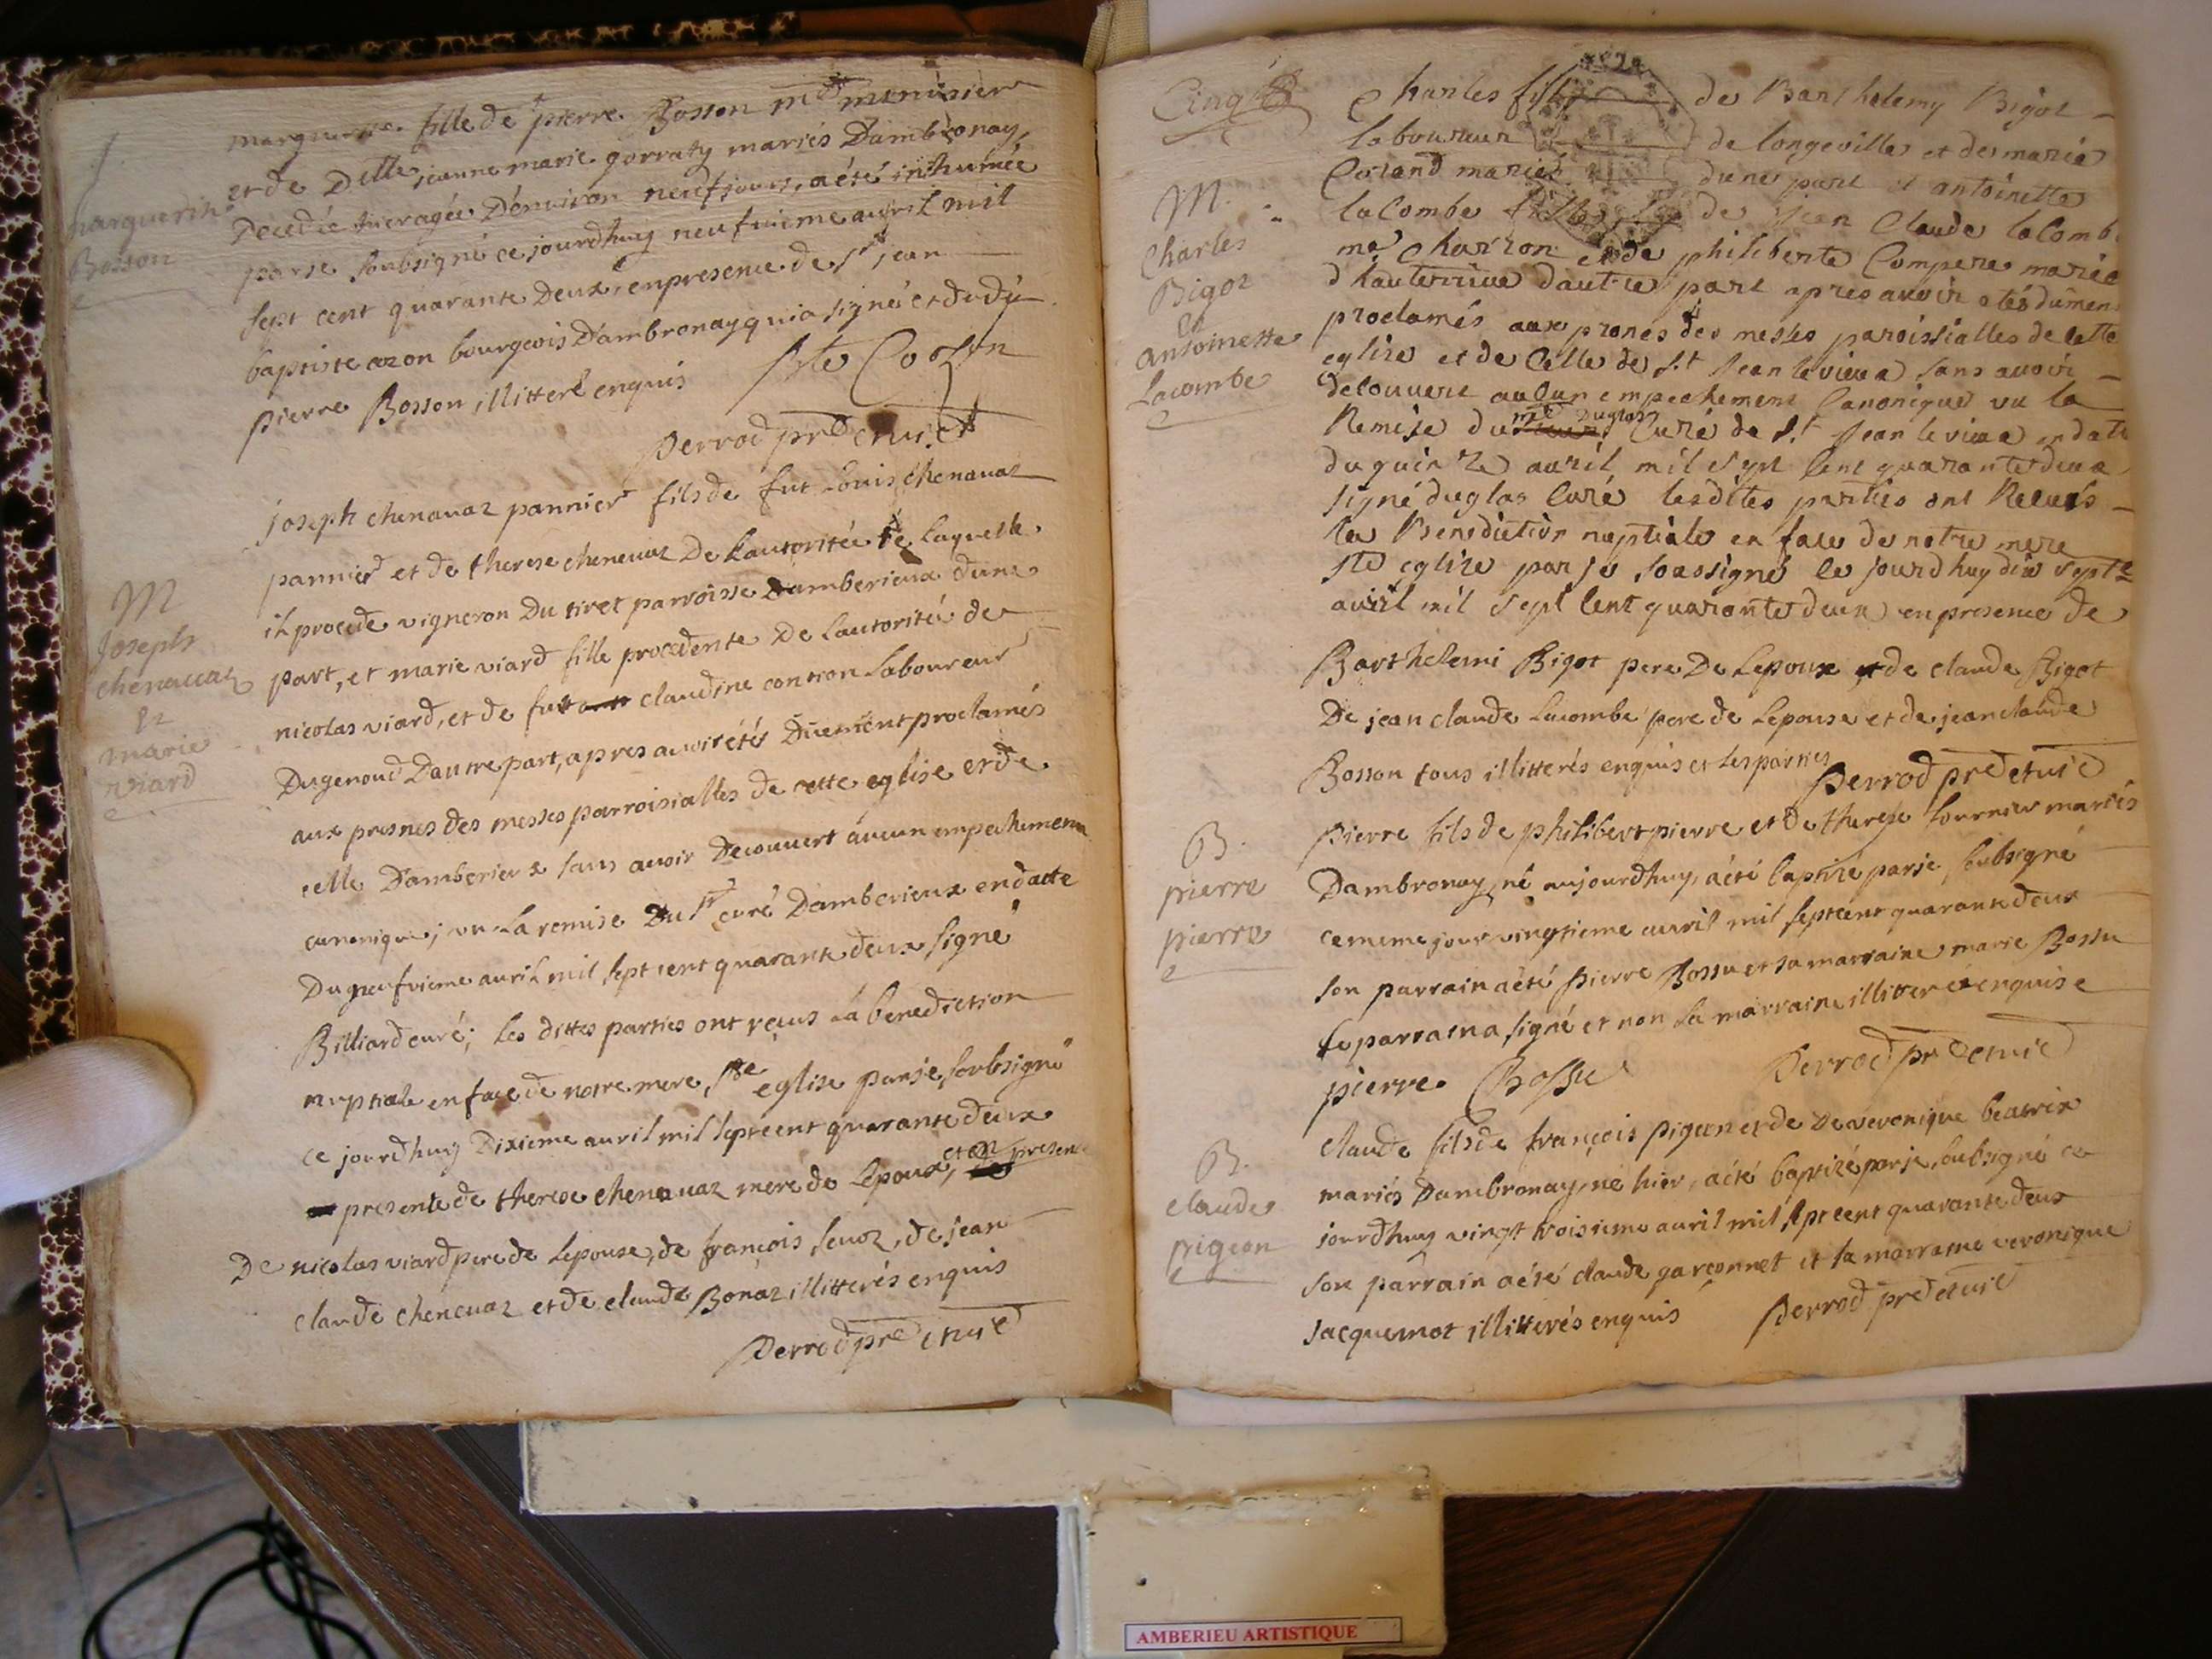 Marguerite fille de pierre Bosson md menusier
et de Dlle jeanne marie gorraty mariés Dambronay,
Decedée hier agée Denviron neuf jours, a été inhumée
par je soubsigné ce jourdhuy neufvieme avril mil
sept cent quarante Deux, en presence de sr jean
baptiste cozon bourgeois Dambronay qui a signé et dudit
pierre Bosson illitteré enquis
Perrod pre et curé
Marguerite
Bosson
joseph chenavaz pannier fils de fut Louis chenavaz
pannier et de therese chenevaz De Lautoritée de Laquelle
il procede vigneron Du tiret parroisse Damberieux dune
part, et marie viard fille procedente De Lautorité de
nicolas viard, et de fut claudine contion Laboureur
Dugenoud Dautre part, apres avoir étés Duement proclamés
aux prosnes des messes parroissialles de cette eglise et de
celle Damberieux sans avoir Decouvert aucun empechement
canonique; vu La remise Du sr curé Damberieux en datte
Du neufvieme avril mil sept cent quarante deux signé
Billiard curé; les dittes parties ont reçus La benediction
nuptiale en face de notre mere Ste eglise par je soubsigné
ce jourdhuy Dixieme avril mil sept cent quarante deux
presente de therese chenavaz mere de Lepoux, et en presence
De nicolas viard pere de Lepouse, de françois senoz, de jean
claude chenevaz et de claude Bonaz illitterés enquis
Perrod pre et curé
M
Joseph
chenavaz
et
marie
viard
Cinq
Charles fils de Barthelemy Bigot
laboureur de longeville et de marie
Corand mariés dune part et antoinette
lacombe fille de Jean Claude lacombe
me Charron et de philiberte Compere mariés
d'hauterive dautre part apres avoir etés dûment
proclamés aux prones des messes paroissialles de cette
eglise et de Celle de St Jean le vieux sans avoir
decouvert aucun empechement Canonique vu la
Remise du mre Duglas Curé de St Jean le vieux en date
du quinze avril mil sept Cent quarante deux
signé duglas Curé lesdites parties ont Recues
la Benediction nuptiale en face de notre mere
Ste eglise par je soussigné Ce jourdhuy dix sept
avril mil sept Cent quarante deux en presence de
Barthelemi Bigot pere De Lepoux et de claude Bigot
De jean claude Lacombe pere de Lepouse et de jean claude
Bosson tous illitterés enquis et les parties
Perrod pre et curé
M.
Charles
Bigot
et
antoinette
Lacombe
pierre fils de philibert pierre et de therese fournier mariés
Dambronay, né aujourdhuy, a été baptisé par je soubsigné
ce meme jour vingtieme avril mil sept cent quarante deux
son parrain a été pierre Bossu et sa marraine marie Bossu
le parrain a signé et non la marraine illitterée enquise
pierre Bossu
Perrod pre et curé
B.
pierre
pierre
claude fils de françois pigeon et de De veronique beatrix
mariés Dambronay, né hier, a été baptisé par je soubsigné ce
jourdhuy vingt troisieme avril mil sept cent quarante deux
son parrain a été claude garçonnet et sa marraine veronique
Jacquemot illitterés enquis
Perrod pre et curé
B.
claude
pigeon
AMBERIEU ARTISTIQUE